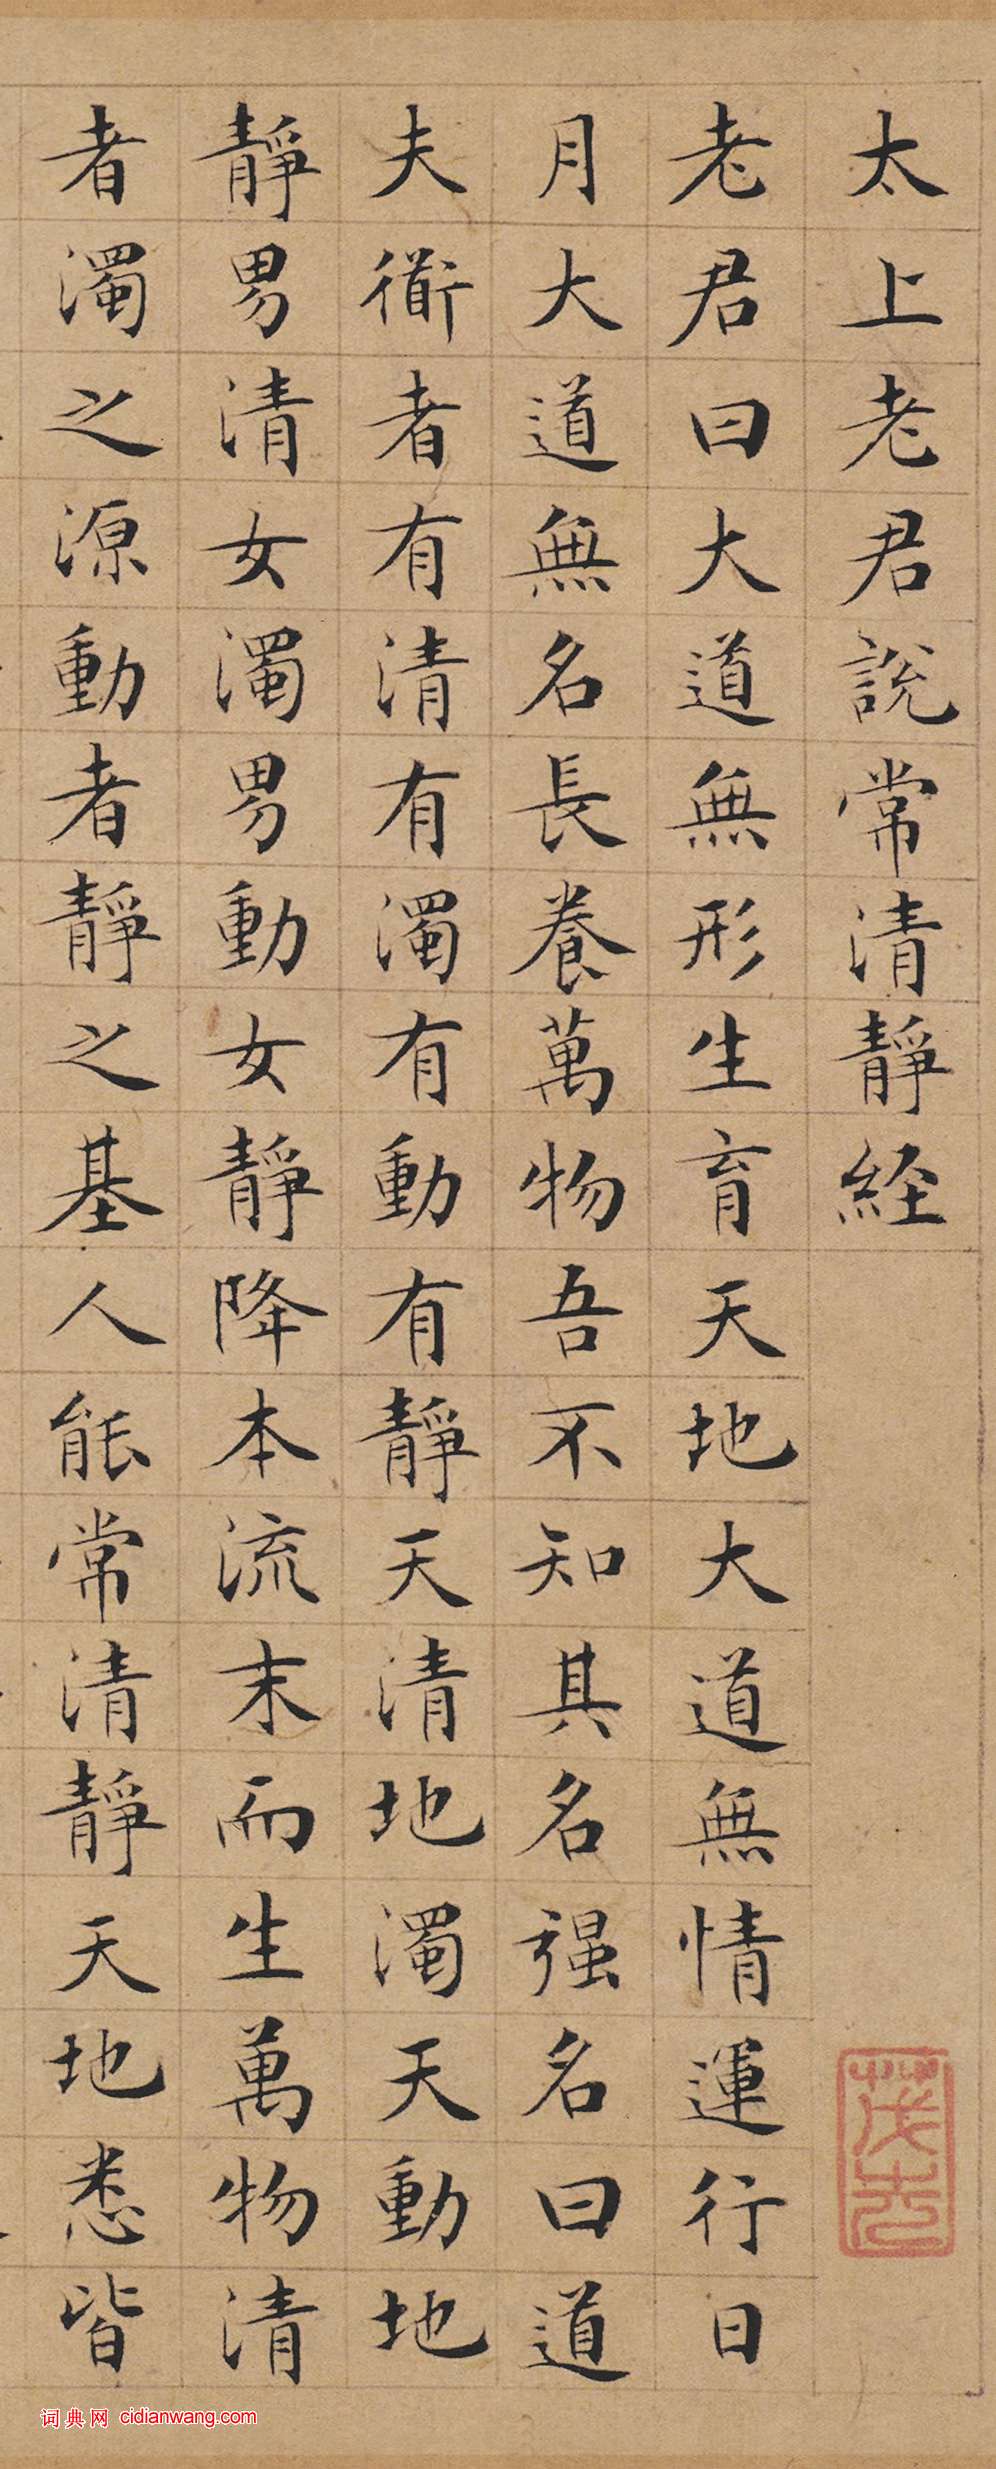 太上老君說常清靜経
老君曰大道無形生育天地大道無情運行日
月大道無名長養萬物吾不知其名强名曰道
夫衜者有清有濁有動有靜天清地濁天動地
靜男清女濁男動女靜降本流末而生萬物清
者濁之源動者靜之基人能常清靜天地悉皆
词典网 cidianwang.com